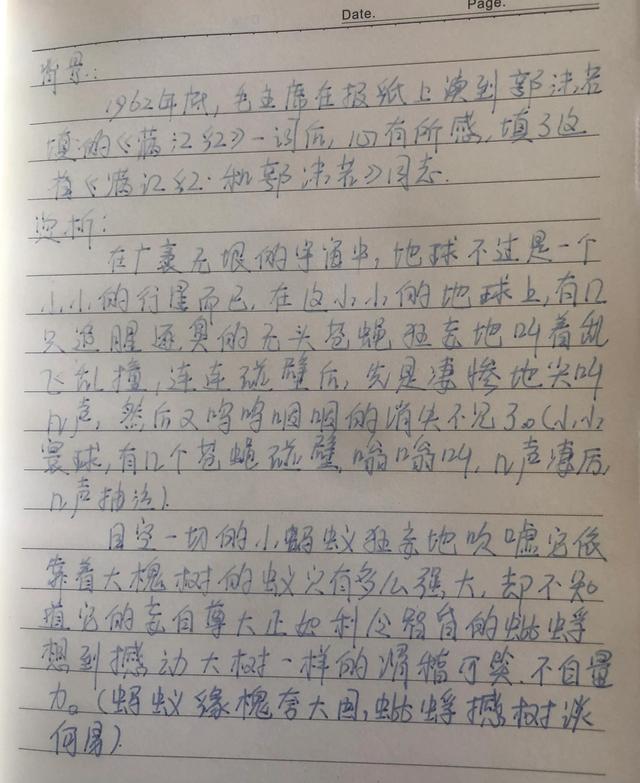 Date.
Page.
背景:
1962年底,毛主席在报纸上读到郭沫若
填的《满江红》一词后,心有所感,填了这
首《满江红·和郭沫若》同志.
赏析:
在广袤无垠的宇宙中,地球不过是一个
小小的行星而已.在这小小的地球上,有几
只追腥逐臭的无头苍蝇狂妄地叫着乱
飞乱撞,连连碰壁后,先是凄惨地尖叫
几声,然后又呜呜咽咽的消失不见了。(小小
寰球,有几个苍蝇碰壁,嗡嗡叫,几声凄厉,
几声抽泣).
目空一切的小蚂蚁狂妄地吹嘘它依
靠着大槐树的蚁穴有多么强大,却不知
道它的妄自尊大正如利令智昏的蚍蜉
想到撼动大树一样的滑稽可笑.不自量
力。(蚂蚁缘槐夸大国,蚍蜉撼树谈
何易).